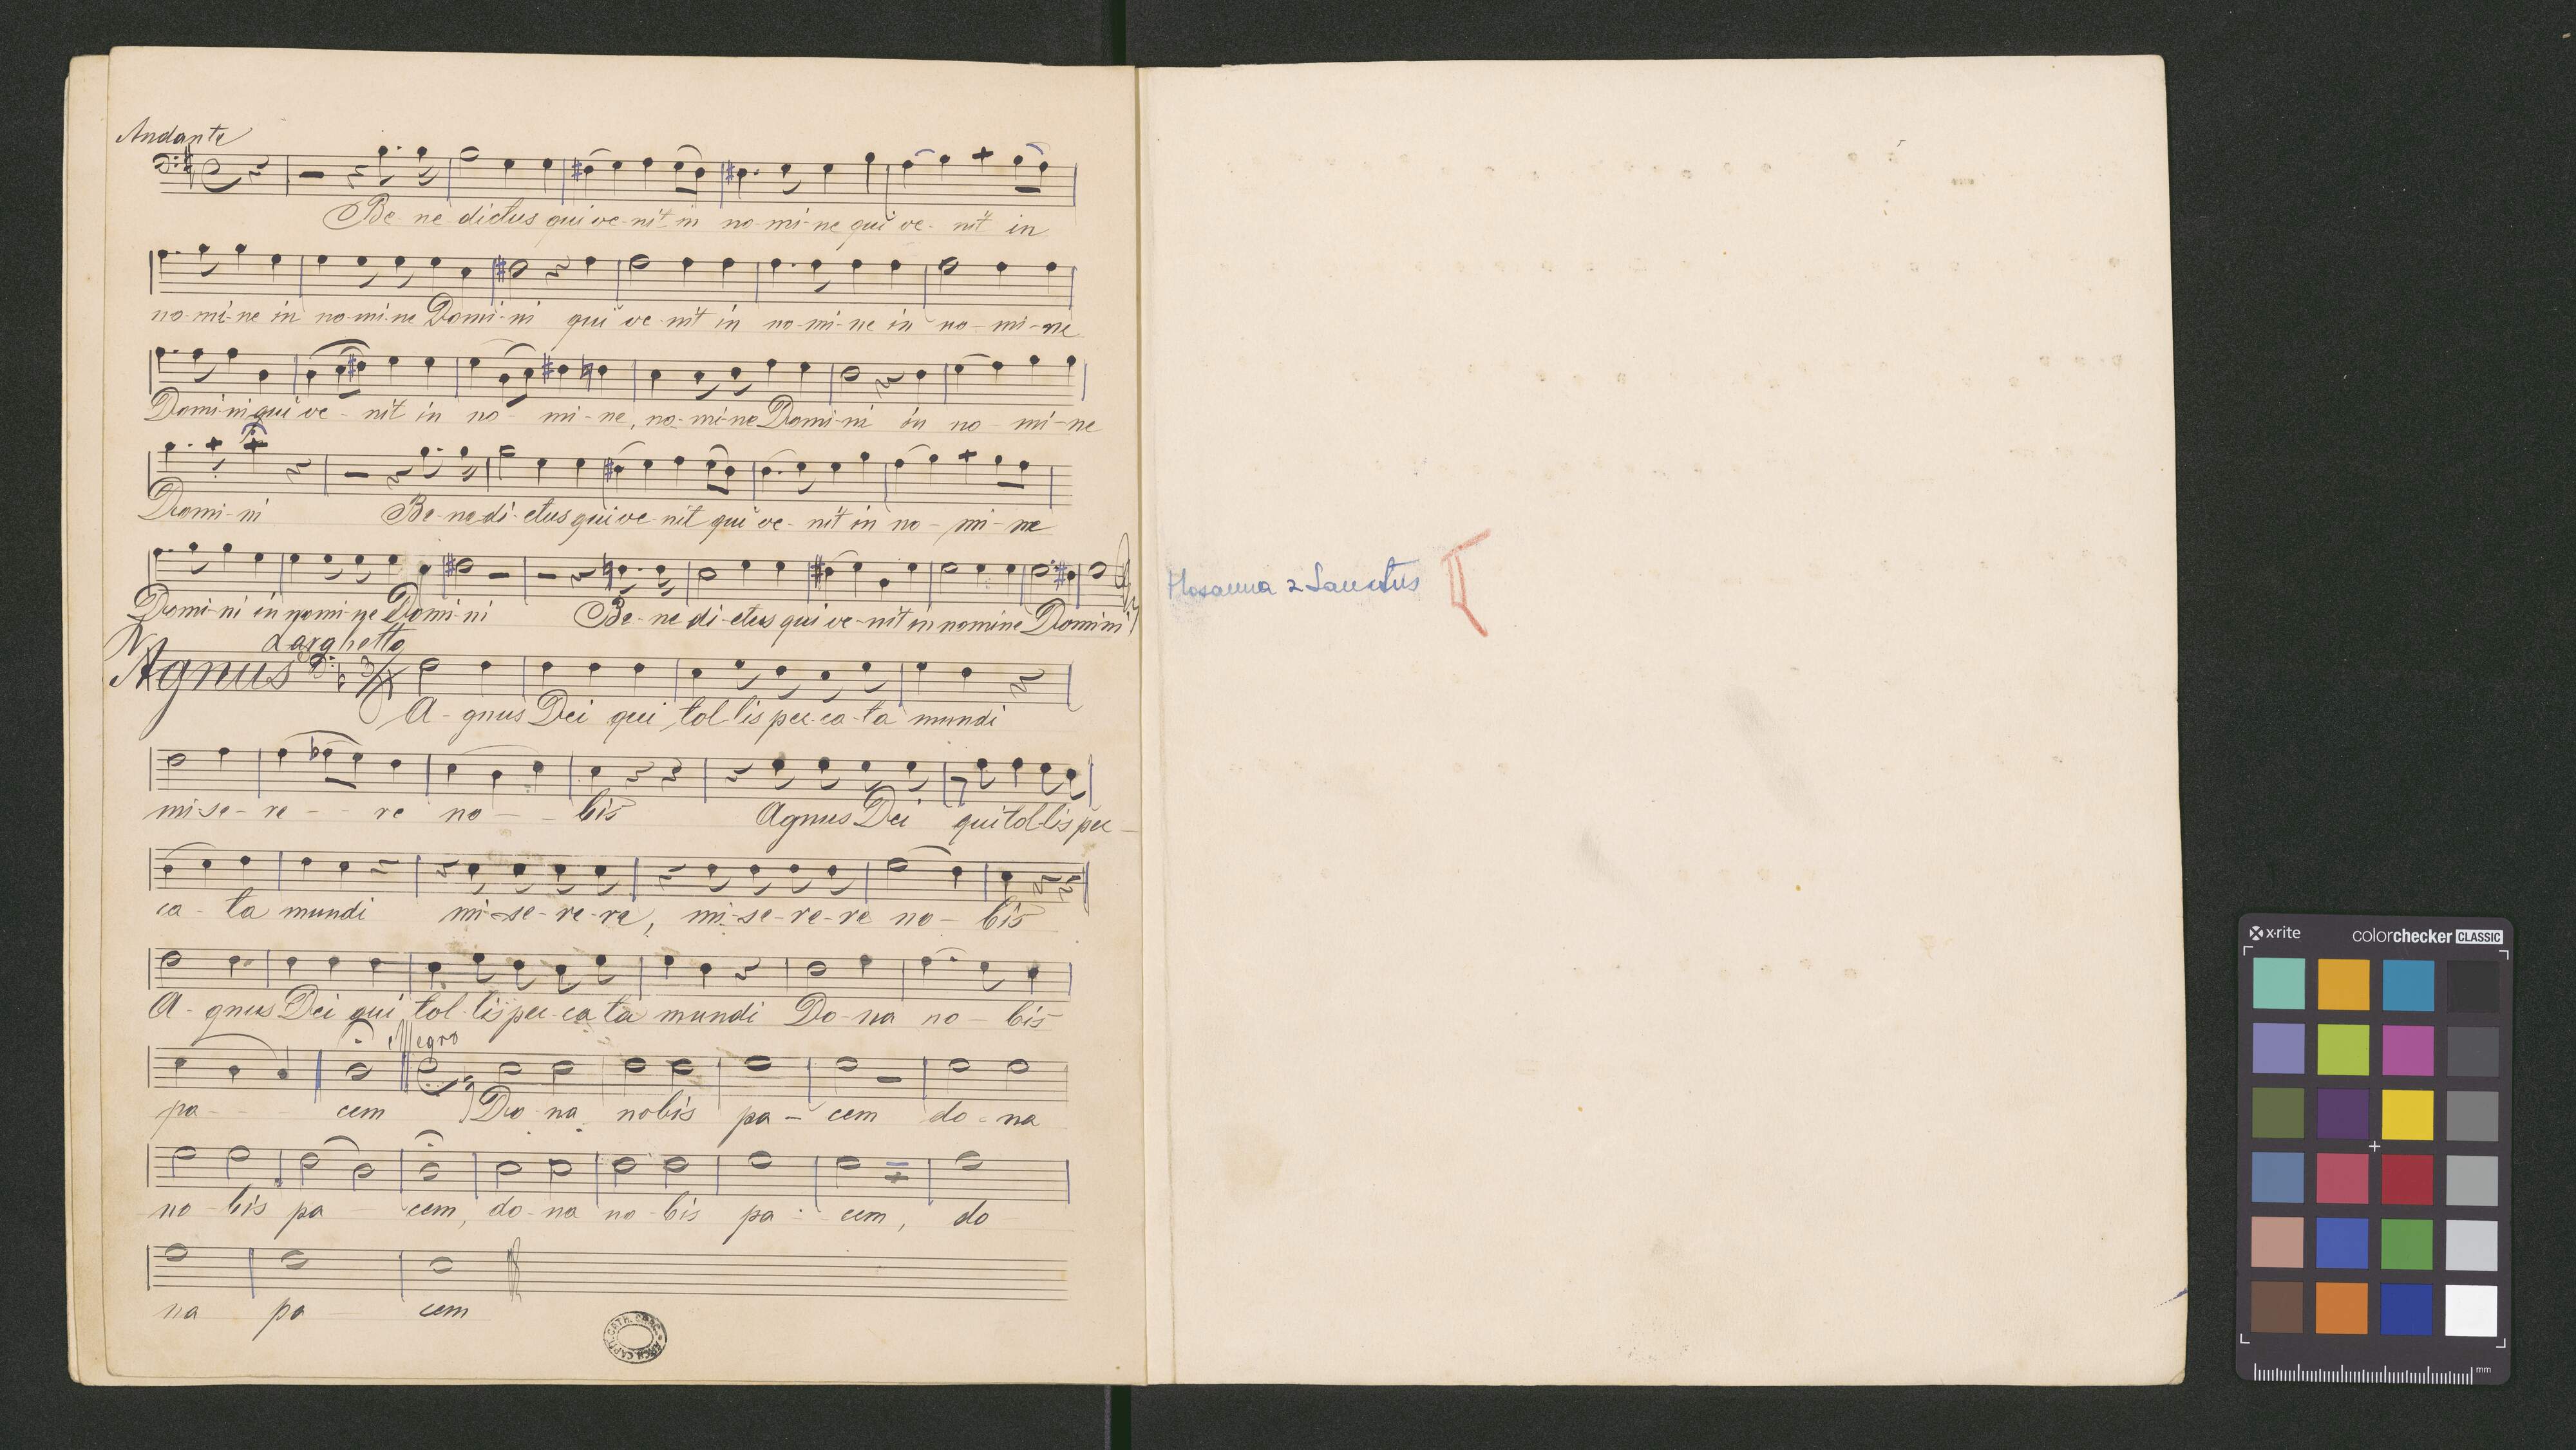 Andante
Be - ne - dictus qui ve - nit in no - mi - ne qui ve - nit in
no - mi - ne in no - mi - ne Domi - ni qui ve - nit in no - mi - ne in no - mi - ne
Domi - ni qui ve - nit in no - mi - ne, no - mi - ne Domi - ni in no - mi - ne
Domi - ni Be - ne di - ctus qui ve - nit qui ve - nit in no - mi - ne
Domi - ni in nomi - ne Domi - ni Be - ne di - ctus qui ve - nit in nomine Domini
Larghetto
Agnus
A - gnus Dei qui tol lis pec - ca - ta mundi
mi - se - re - - re no - - bis Agnus Dei qui tol - lis pec -
ca - ta mundi mi - se - re - re, mi - se - re - re no - bis
A - gnus Dei qui tol - lis pec - ca ta mundi Do - na no - bis
Allegro
pa - - - cem Do - na nobis pa - cem do - na
no - bis pa - cem, do - na no - bis pa - cem, do
na pa - cem
Hosanna z Sanctus
x-rite colorchecker CLASSIC
mm